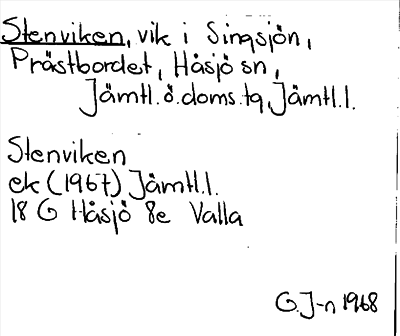 Stenviken, vik i Singsjön,
Prästbordet, Håsjö sn,
Jämtl.ö.doms.tg, Jämtl.l.
Stenviken
ek (1967) Jämtl.l.
18 G Håsjö 8e Valla
G.J-n 1968